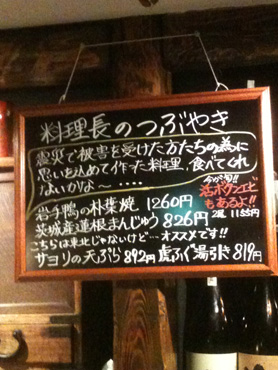 料理長のつぶやき
震災で被害を受けた方たちの為に
思いを込めて作った料理、食べてくれ
ないかなぁ〜‥‥
今が旬!!
活ボタンエビ
もあるよ!!
2尾 1155円
岩手鴨の朴葉焼 1260円
茨城産蓮根まんじゅう 826円
こちらは東北じゃないけど…オススメです!!
サヨリの天ぷら 892円 虎ふぐ湯引き 819円